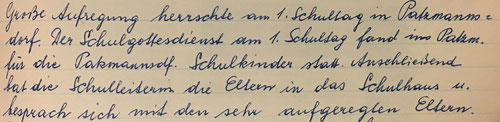 Große Aufregung herrschte am 1. Schultag in Patzmanns=
dorf. Der Schulgottesdienst am 1. Schultag fand in Patzm.
für die Patzmannsdf. Schulkinder statt. Anschließend
bat die Schulleiterin die Eltern in das Schulhaus u.
besprach sich mit den sehr aufgeregten Eltern.